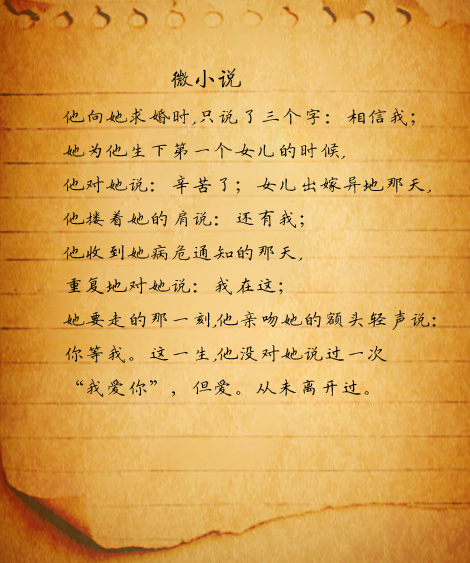 微小说
他向她求婚时,只说了三个字：相信我；
她为他生下第一个女儿的时候,
他对她说：辛苦了；女儿出嫁异地那天,
他搂着她的肩说：还有我；
他收到她病危通知的那天,
重复地对她说：我在这；
她要走的那一刻,他亲吻她的额头轻声说：
你等我。这一生,他没对她说过一次
“我爱你”，但爱。从未离开过。